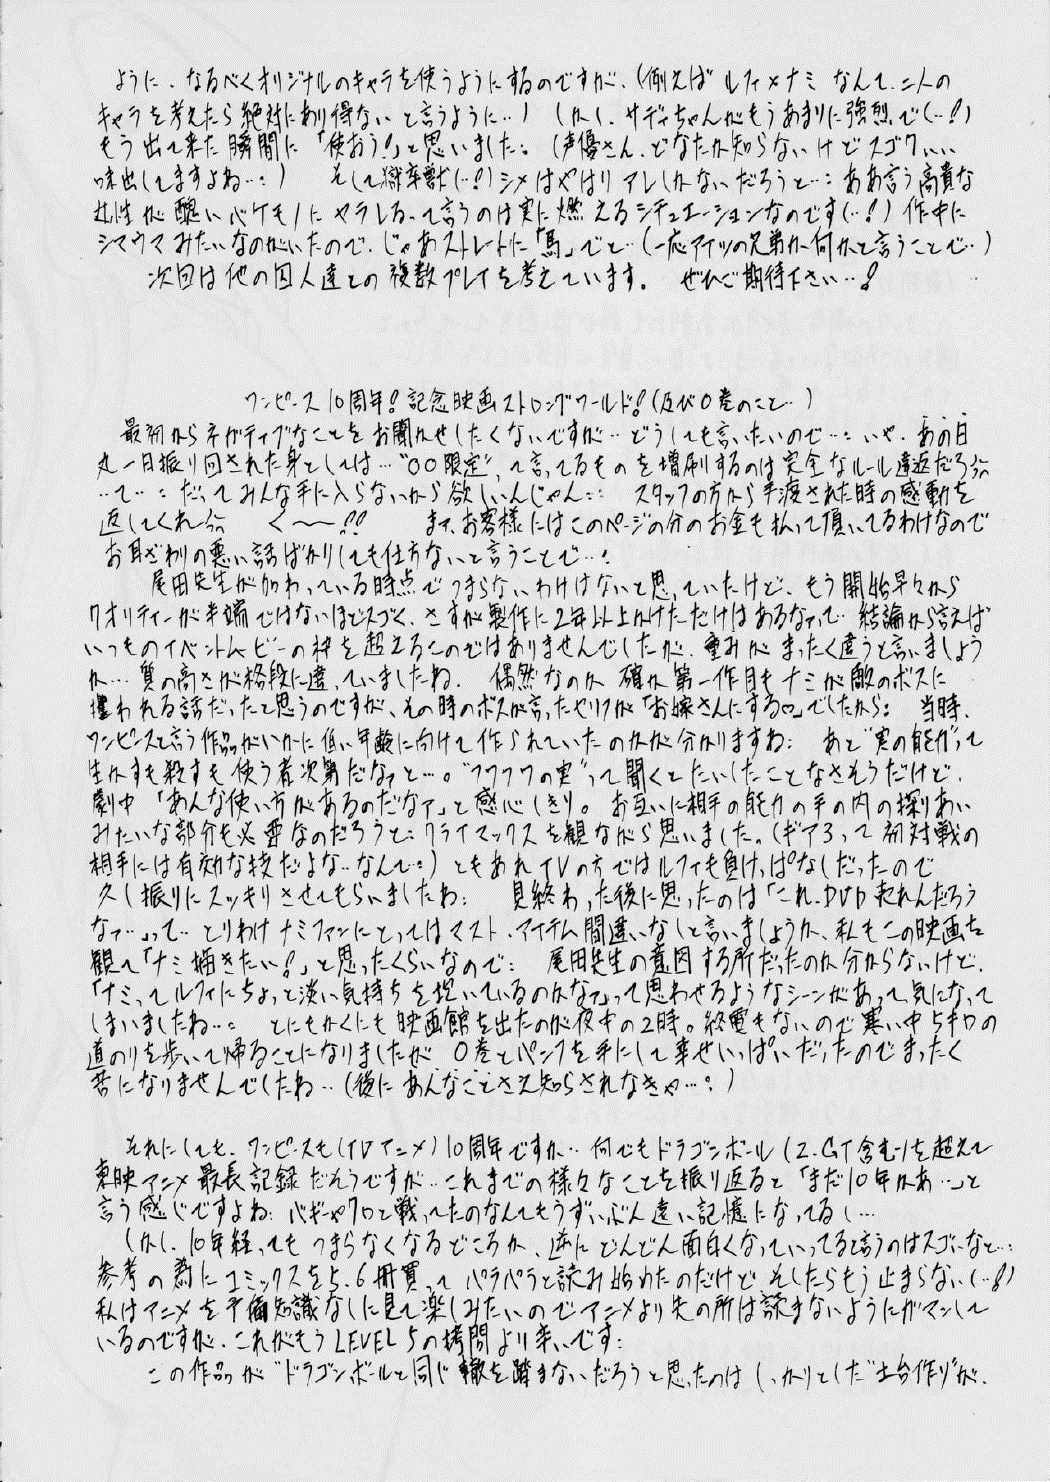 ように、なるべくオリジナルのキャラを使うようにするのですが、(例えば ルフィ×ナミ なんて、二人の
キャラを考えたら絶対にあり得ない と言うように…) しかし、サディちゃんがもうあまりに強烈で(…!)
もう出て来た瞬間に「使おう!」と思いました: (声優さん、どなたか知らないけどスゴクいい
味出してますよね…:) そして獄卒獣(…!)シメはやはり アレしかないだろうと…: ああ言う高貴な
女性が醜いバケモノにヤラレるって言うのは実に燃えるシチュエーションなのです(…!) 作中に
シマウマみたいなのがいたので、じゃあストレートに「馬」でと…(一応アイツの兄弟か何かと言うことで…)
次回は他の囚人達との複数プレイを考えています。 ぜひご期待下さい…!
ワンピース10周年!記念映画ストロングワールド!(及び0巻のこと…)
最初からネガティブなことをお聞かせしたくないですが…どうしても言いたいので…: いや、あの日
丸一日振り回された身としては…"○○限定"って言ってるものを増刷するのは完全なルール違反だろ
…て…: だってみんな手に入らないから欲しいんじゃん:: スタッフの方から手渡された時の感動を
返してくれ く〜〜!! まァ、お客様にはこのページの分のお金も払って頂いてるわけなので
お耳ざわりの悪い話ばかりしても仕方ないと言うことで…:
尾田先生が加わっている時点でつまらないわけはないと思っていたけど、もう開始早々から
クオリティーが半端ではないほどスゴく、さすが製作に2年以上かけただけはあるなァって… 結論から言えば
いつものイベントムービーの枠を超えるものではありませんでしたが、重みがまったく違うと言いましょう
か… 質の高さが格段に違っていましたね. 偶然なのか 確か第一作目もナミが敵のボスに
攫われる話だったと思うのですが、その時のボスが言ったセリフが「お嫁さんにする♡」でしたから: 当時、
ワンピースと言う作品がいかに低い年齢に向けて作られていたのかが分かりますね: あと"実の能力"って
生かすも殺すも使う者次第だなァと…。"フワフワの実"って聞くとたいしたことなさそうだけど、
劇中「あんな使い方があるのだなァ」と感心しきり。お互いに相手の能力の手の内の探りあい
みたいな部分も必要なのだろうと:クライマックスを観ながら思いました。(ギア3って初対戦の
相手には有効な技だよな…なんて:) ともあれTVの方ではルフィも負けっぱなしだったので
久し振りにスッキリさせてもらいましたね: 見終わった後に思ったのは「これ、DVD売れんだろう
なァ…」って… とりわけナミファンにとってはマスト・アイテム間違いなしと言いましょうか、私もこの映画を
観て「ナミ描きたい!」と思ったくらいなので: 尾田先生の意図する所だったのか分からないけど、
「ナミってルフィにちょっと淡い気持ちを抱いているのかなァ」って思わせるようなシーンがあって、気になって
しまいましたね…: とにもかくにも映画館を出たのが夜中の2時。終電もないので寒い中5キロの
道のりを歩いて帰ることになりましたが 0巻とパンフを手にして幸せいっぱいだったのでまったく
苦になりませんでしたね…(後にあんなことさえ知らされなきゃ…:)
それにしても、ワンピースも(TVアニメ)10周年ですか… 何でもドラゴンボール(Z、GT含む)を超えて
東映アニメ最長記録だそうですが…これまでの様々なことを振り返ると「まだ10年かぁ…」と
言う感じですよね: バギーやクロと戦ってたのなんてもうずいぶん遠い記憶になってるし…
しかし、10年経ってもつまらなくなるどころか、逆にどんどん面白くなっていってると言うのはスゴいなと…:
参考の為にコミックスを5、6冊買ってパラパラと読み始めたのだけど、そしたらもう止まらない(…!)
私はアニメを予備知識なしに見て楽しみたいのでアニメより先の所は読まないようにガマンして
いるのですが、これがもうLEVEL5の拷問より辛いです:
この作品が"ドラゴンボール"と同じ轍を踏まないだろうと思ったのはしっかりとした"土台作り"が、